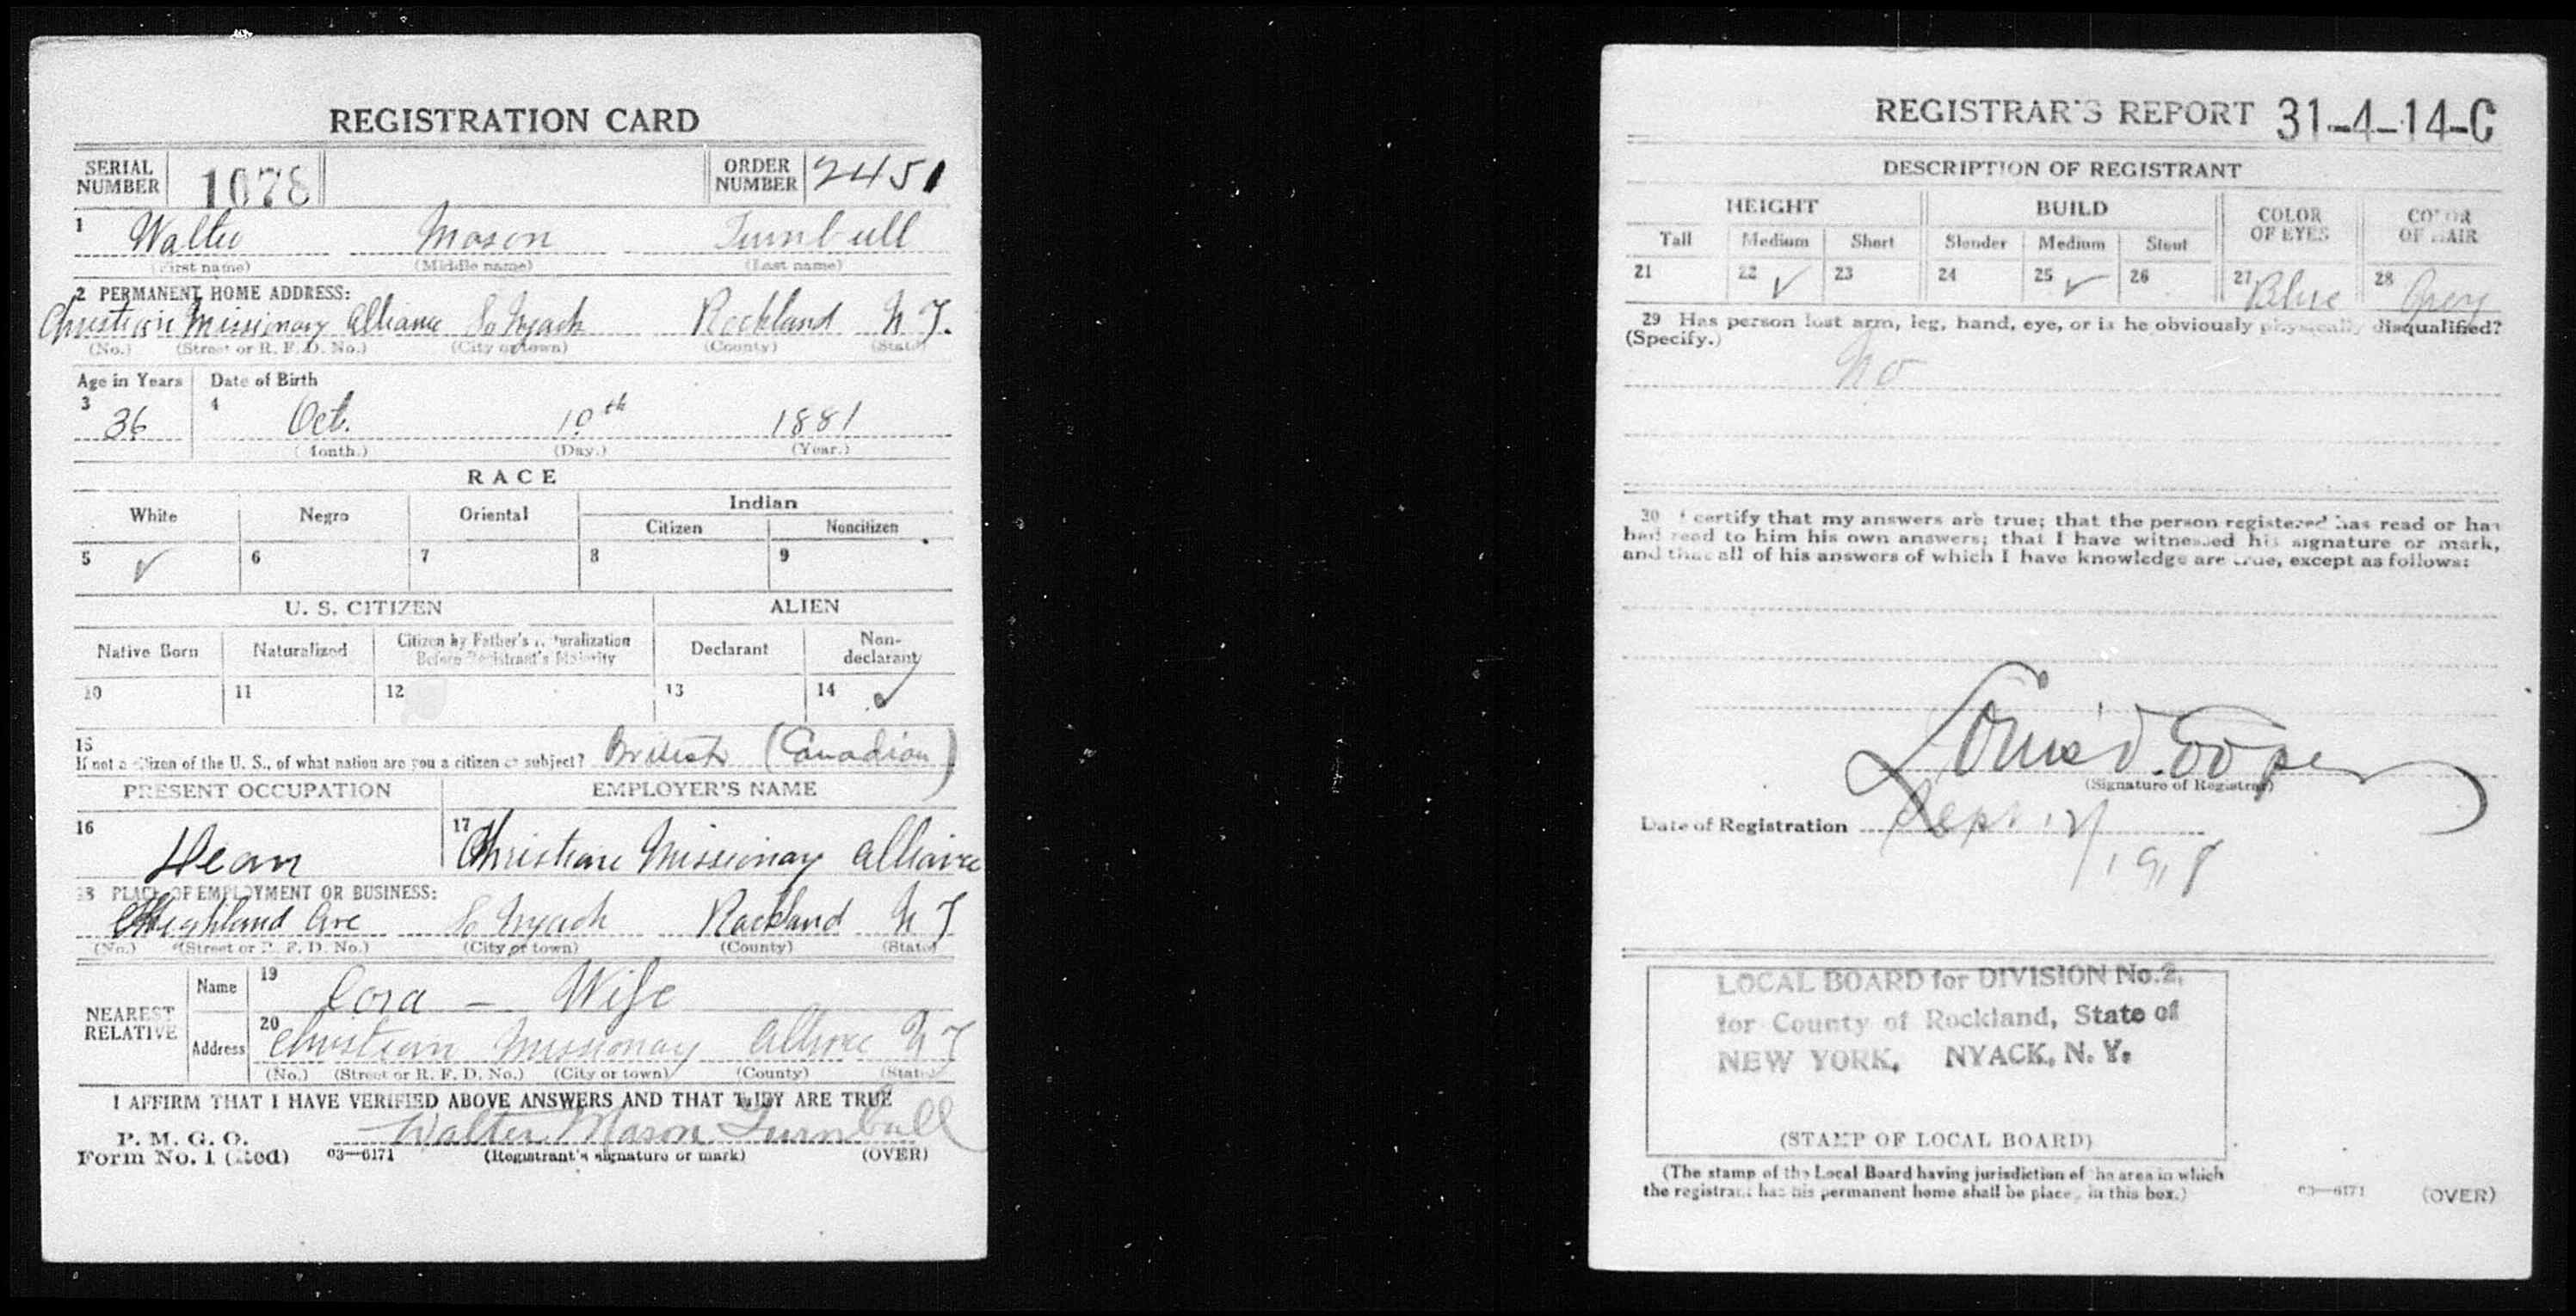 REGISTRATION CARD
SERIAL NUMBER 1078
ORDER NUMBER 2451
1 Walter Mason Turnbull
(First name) (Middle name) (Last name)
2 PERMANENT HOME ADDRESS:
Christian Missionary Alliance So Nyack Rockland N Y.
(No.) (Street or R. F. D. No.) (City or town) (County) (State)
Age in Years Date of Birth
3 36 4 Oct. 10th 1881
(Month.) (Day.) (Year.)
RACE
White Negro Oriental Indian
Citizen Noncitizen
5 ✓ 6 7 8 9
U. S. CITIZEN ALIEN
Native Born Naturalized Citizen by Father's Naturalization Before Registrant's Majority Declarant Non-declarant
10 11 12 13 14 ✓
15
If not a citizen of the U. S., of what nation are you a citizen or subject? British (Canadian)
PRESENT OCCUPATION EMPLOYER'S NAME
16 Dean 17 Christian Missionary Alliance
18 PLACE OF EMPLOYMENT OR BUSINESS:
Highland Ave So Nyack Rockland N Y
(No.) (Street or R. F. D. No.) (City or town) (County) (State)
NEAREST RELATIVE
Name 19 Cora - Wife
Address 20 Christian Missionary Alliance N Y
(No.) (Street or R. F. D. No.) (City or town) (County) (State)
I AFFIRM THAT I HAVE VERIFIED ABOVE ANSWERS AND THAT THEY ARE TRUE
P. M. G. O.
Form No. 1 (Red) 03—6171 Walter Mason Turnbull
(Registrant's signature or mark) (OVER)
REGISTRAR'S REPORT 31-4-14-C
DESCRIPTION OF REGISTRANT
HEIGHT BUILD COLOR OF EYES COLOR OF HAIR
Tall Medium Short Slender Medium Stout
21 22 ✓ 23 24 25 ✓ 26 27 Blue 28 Grey
29 Has person lost arm, leg, hand, eye, or is he obviously physically disqualified?
(Specify.)
No
30 I certify that my answers are true; that the person registered has read or has
had read to him his own answers; that I have witnessed his signature or mark,
and that all of his answers of which I have knowledge are true, except as follows:
(Signature of Registrar)
Date of Registration Sept. 12/1918
LOCAL BOARD for DIVISION No.2,
for County of Rockland, State of
NEW YORK, NYACK, N. Y.
(STAMP OF LOCAL BOARD)
(The stamp of the Local Board having jurisdiction of the area in which
the registrant has his permanent home shall be placed in this box.)
03—6171 (OVER)